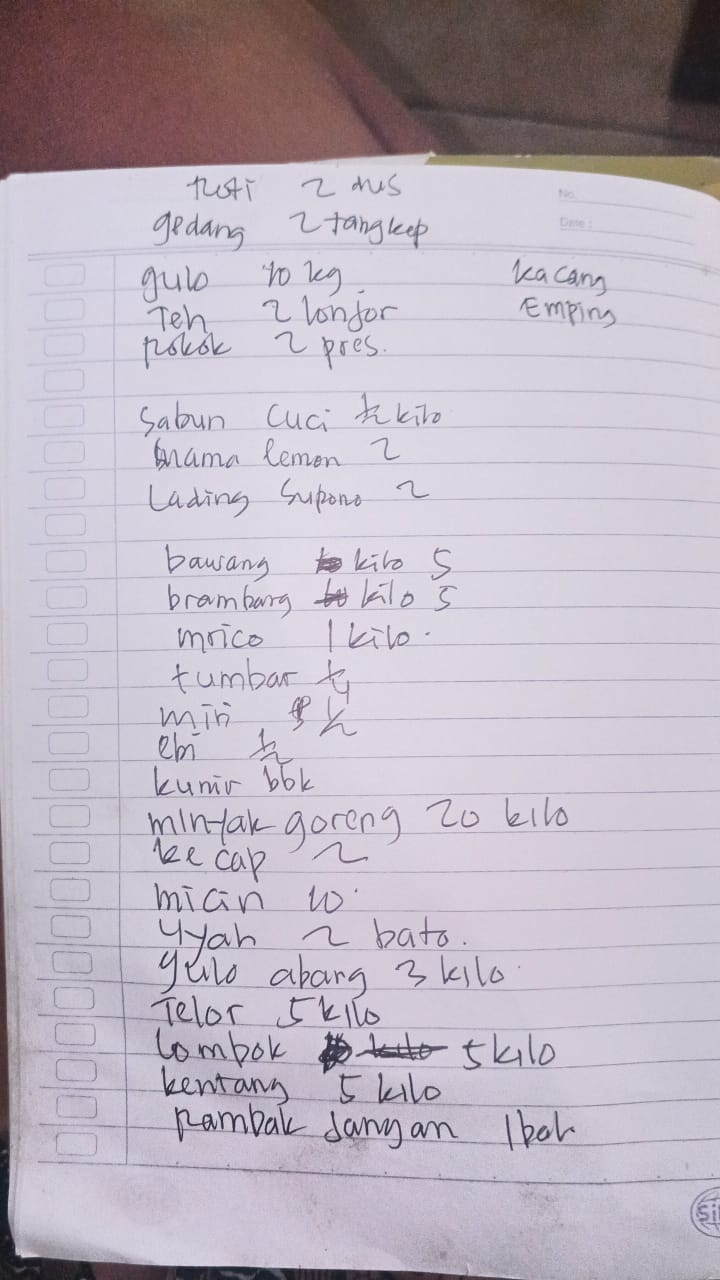 roti 2 dus
gedang 2 tangkep
No.
Date :
gulo 10 kg
kacang
Teh 2 lonjor
Emping
rokok 2 pres.
Sabun cuci ½ kilo
mama lemon 2
Lading Supono 2
bawang kilo 5
brambang kilo 5
mrico 1 kilo.
tumbar ¼
miri ½
ebi ½
kunir bbk
mintak goreng 20 kilo
kecap 2
micin 10
Uyah 2 bato.
gulo abang 3 kilo.
Telor 5 kilo
Lombok 5 kilo
kentang 5 kilo
rambak jangan 1